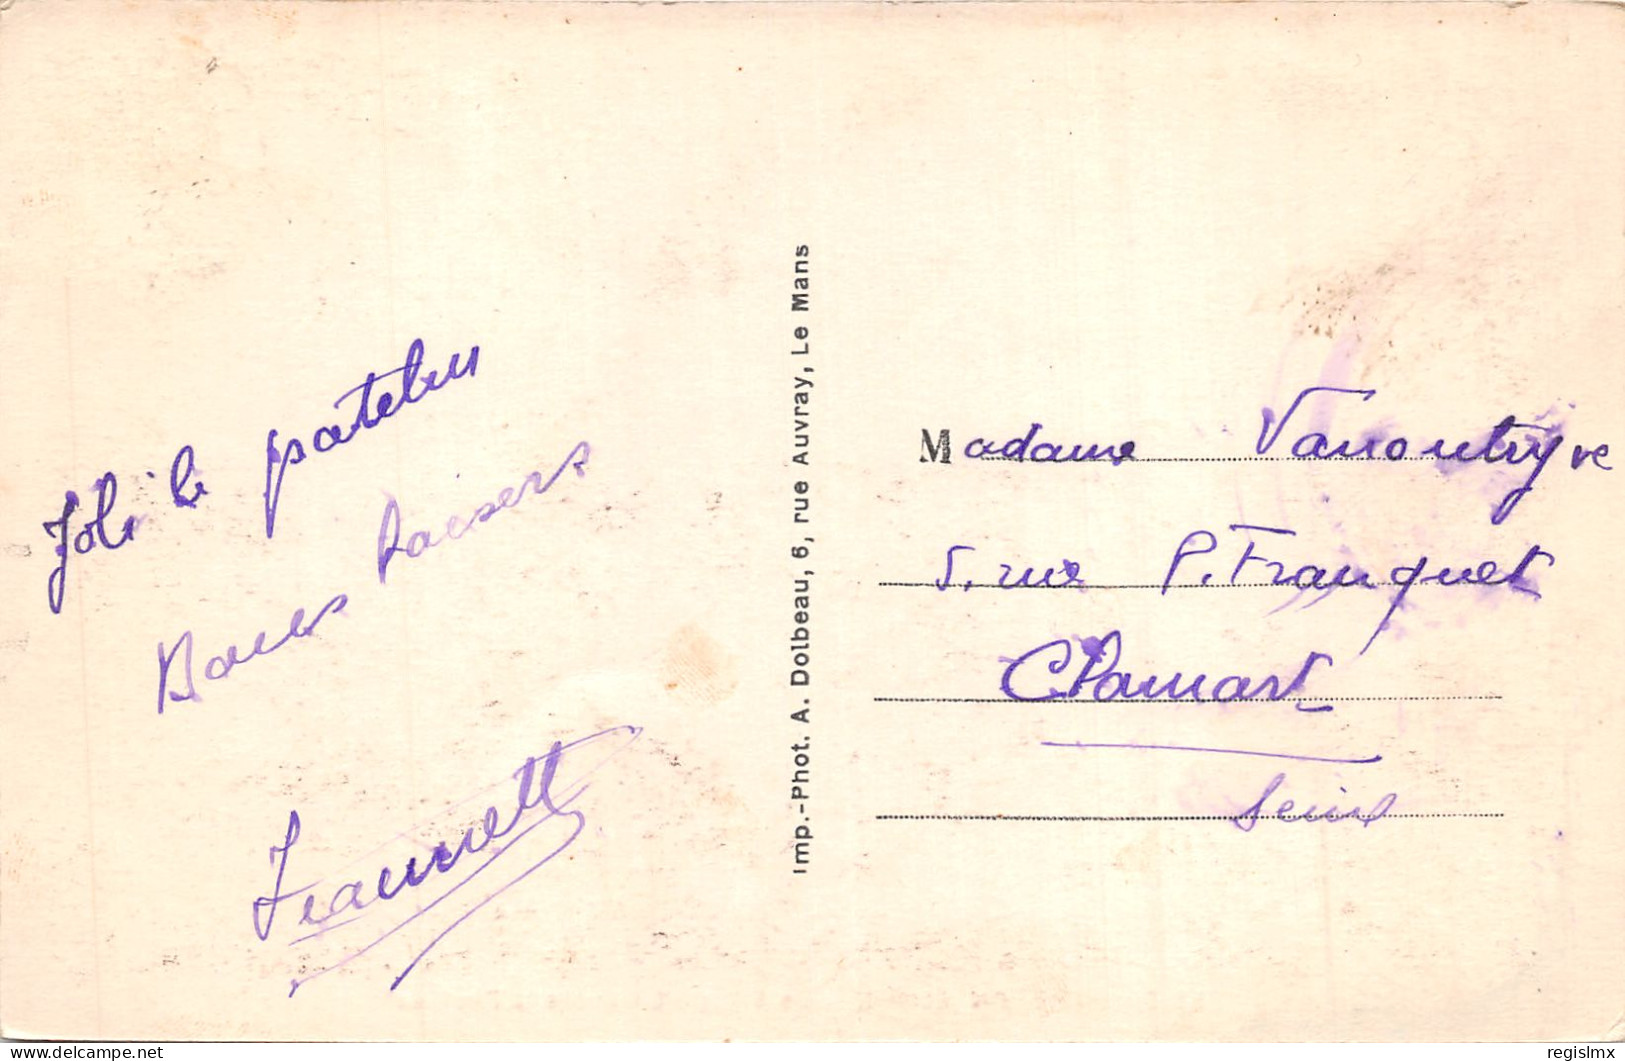 Joli le patelin
Bons baisers
Jeannette
Imp.-Phot. A. Dolbeau, 6, rue Auvray, Le Mans
Madame Vanoutryve
5. rue P. Franquet
Clamart
Seine
delcampe.net
regislmx